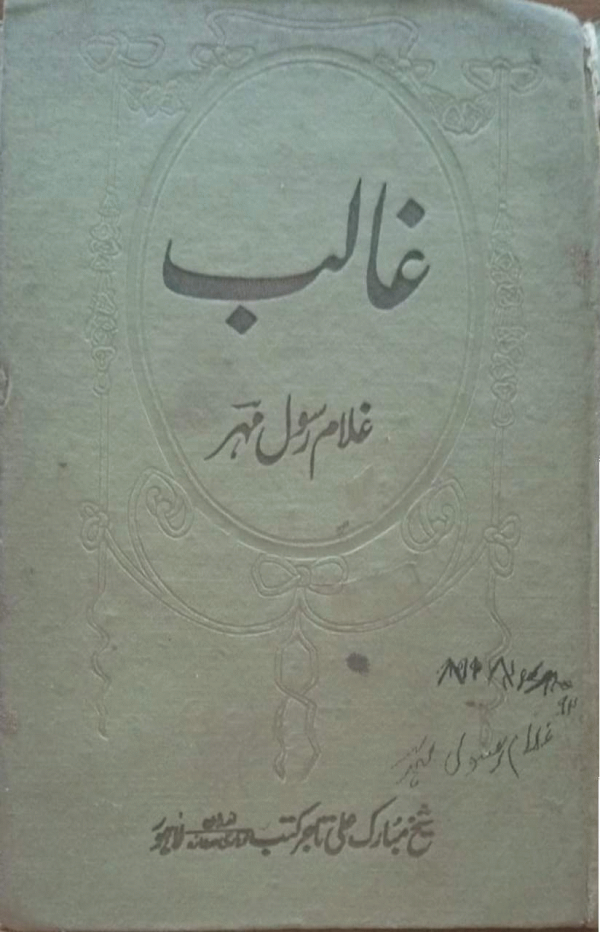 غالب
غلام رسول مہر
غلام رسول مہر
شیخ مبارک علی تاجر کتب لاہور